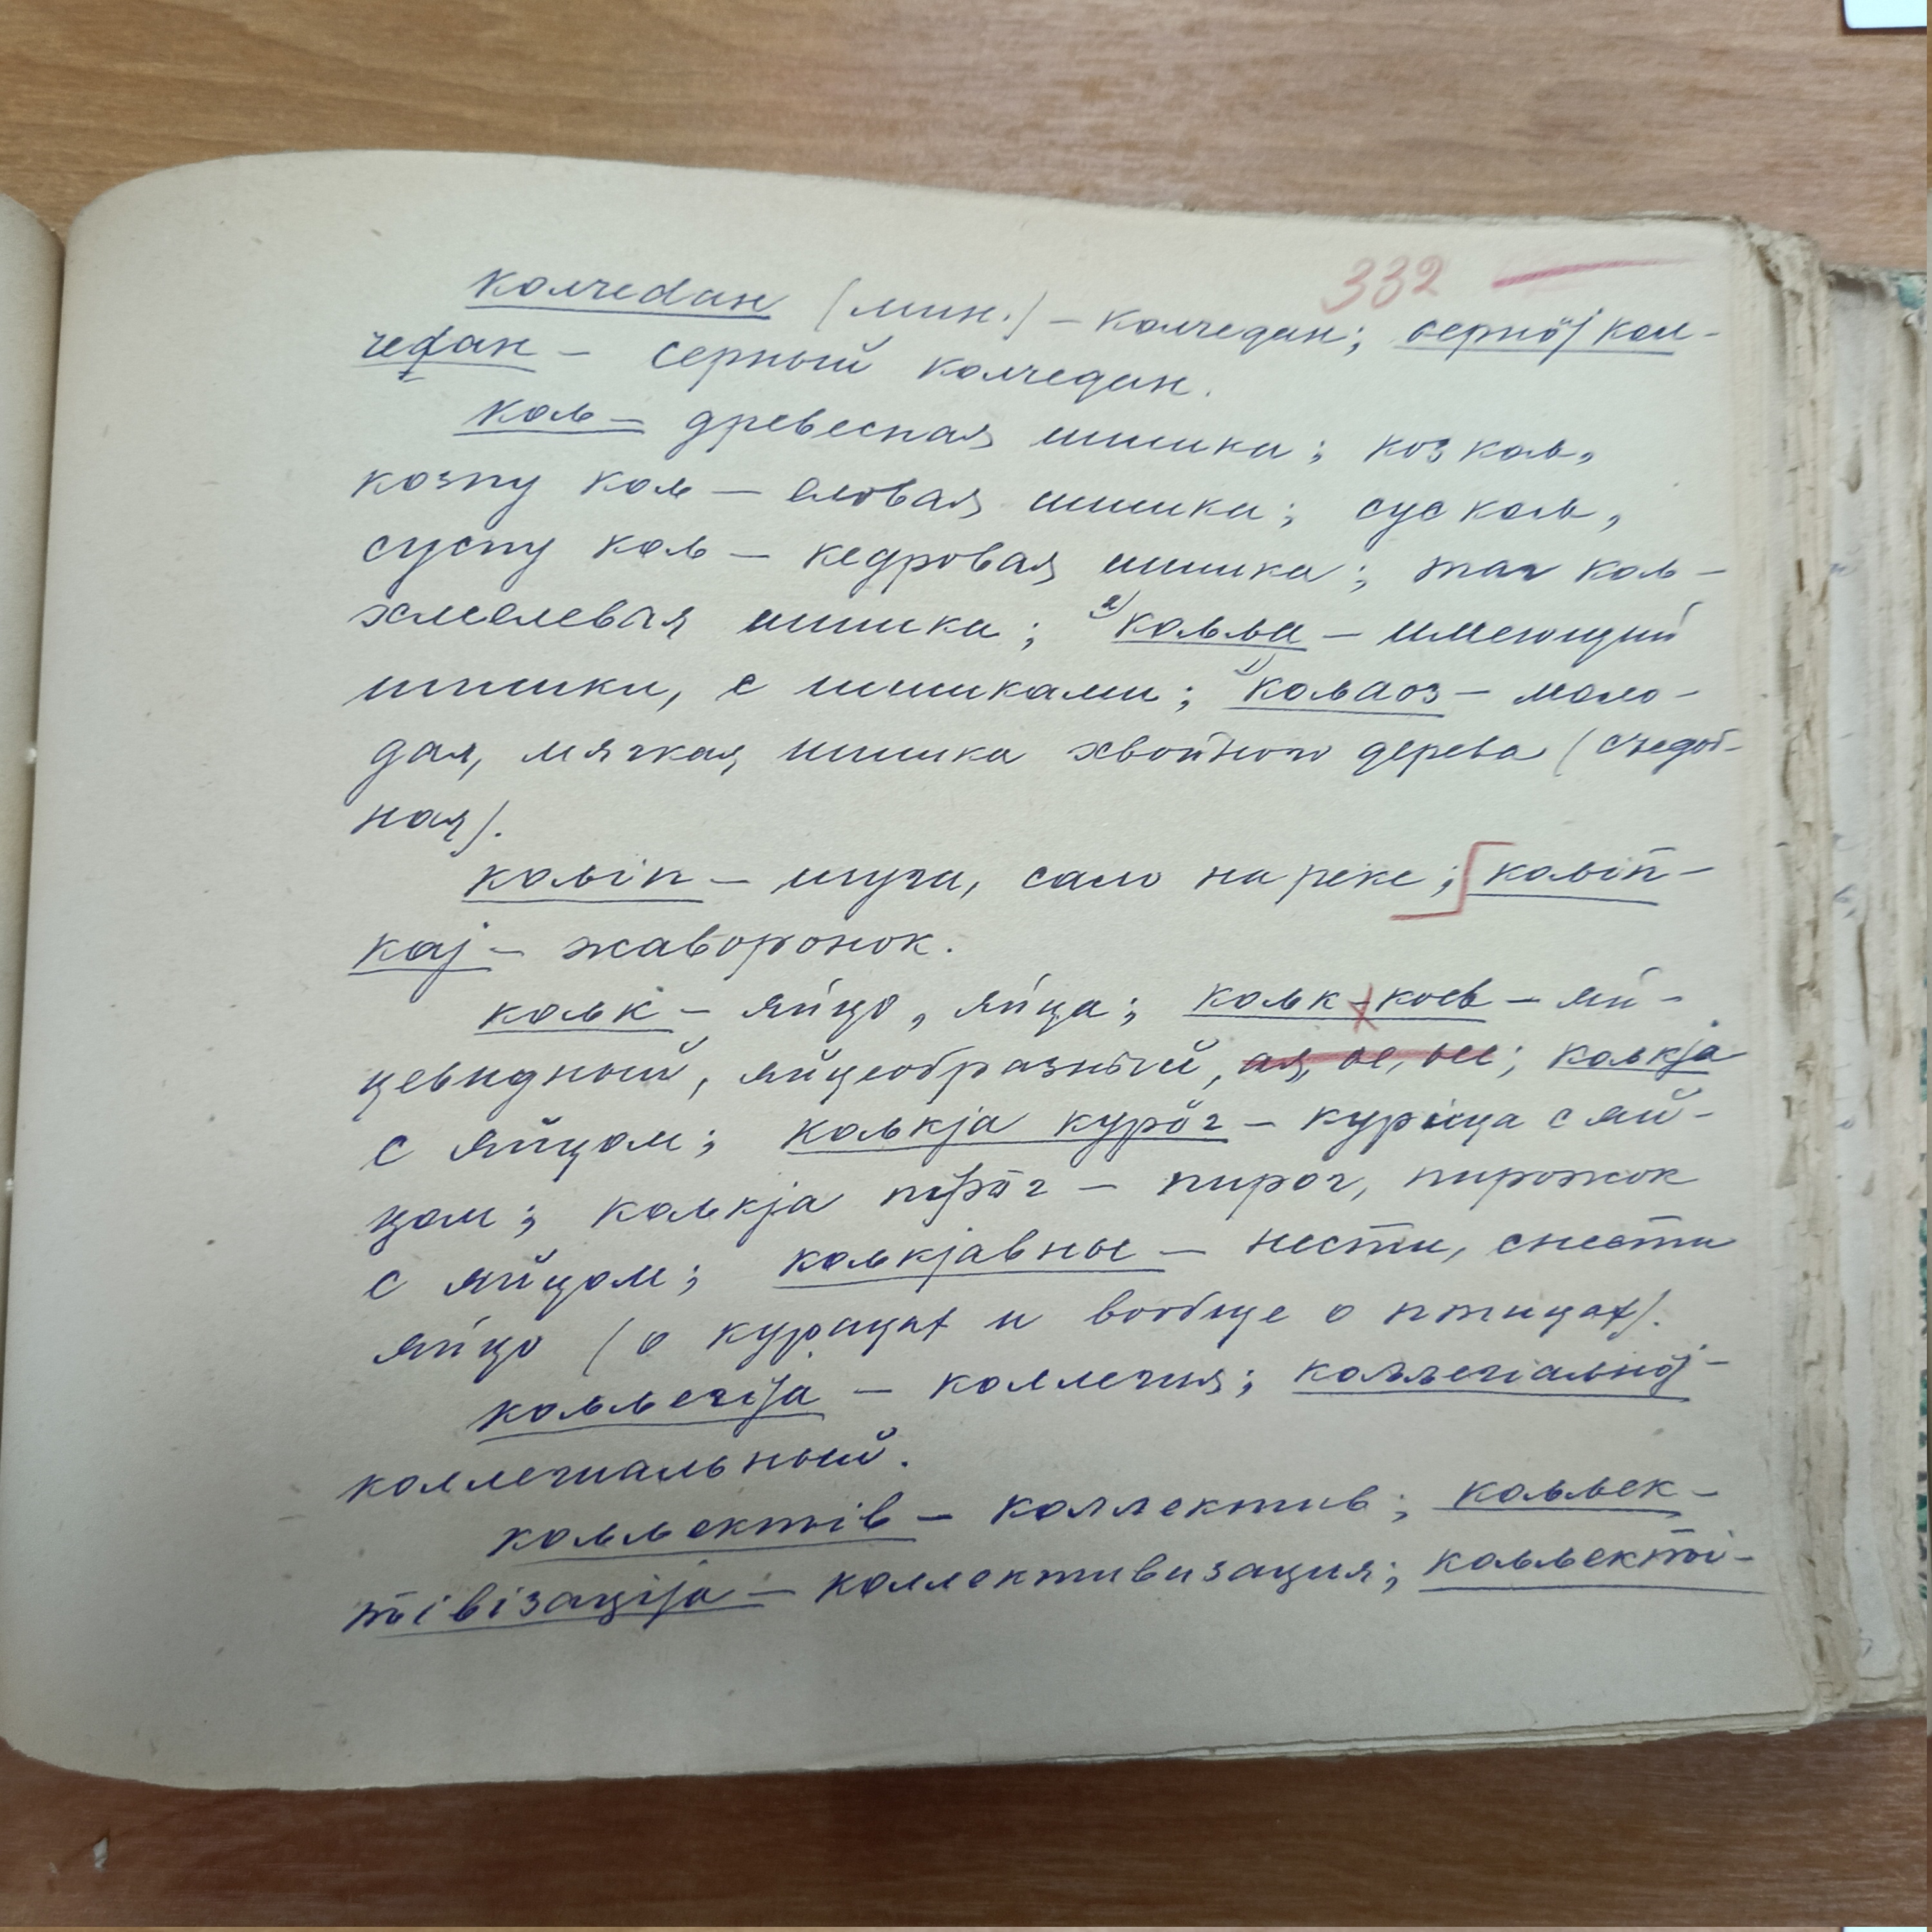 332
колчедан (мин.) – колчедан; сернӧј кол-
чедан – серный колчедан.
коль – древесная шишка; коз коль,
козпу коль – еловая шишка; сус коль,
суспу коль – кедровая шишка; таг коль –
хмелевая шишка; 2) кольла – имеющий
шишки, с шишками; 1) кольаоз – моло-
дая, мягкая шишка хвойного дерева (съедоб-
ная).
кольіп – шуга, сало на реке; кольіп-
кај – жаворонок.
кольк – яйцо, яйца; кольк-коев – яй-
цевидный, яйцеобразный, ая, ое, ые; колькја
с яйцом; колькја курӧг – курица с яй-
цом; колькја пірӧг – пирог, пирожок
с яйцом; колькјавны – нести, снести
яйцо (о курицах и вообще о птицах).
кольлегіја – коллегия; коллегіальнӧј –
коллегиальный.
кольлектів – коллектив; кольлек-
тівізаціја – коллективизация; кольлекті-